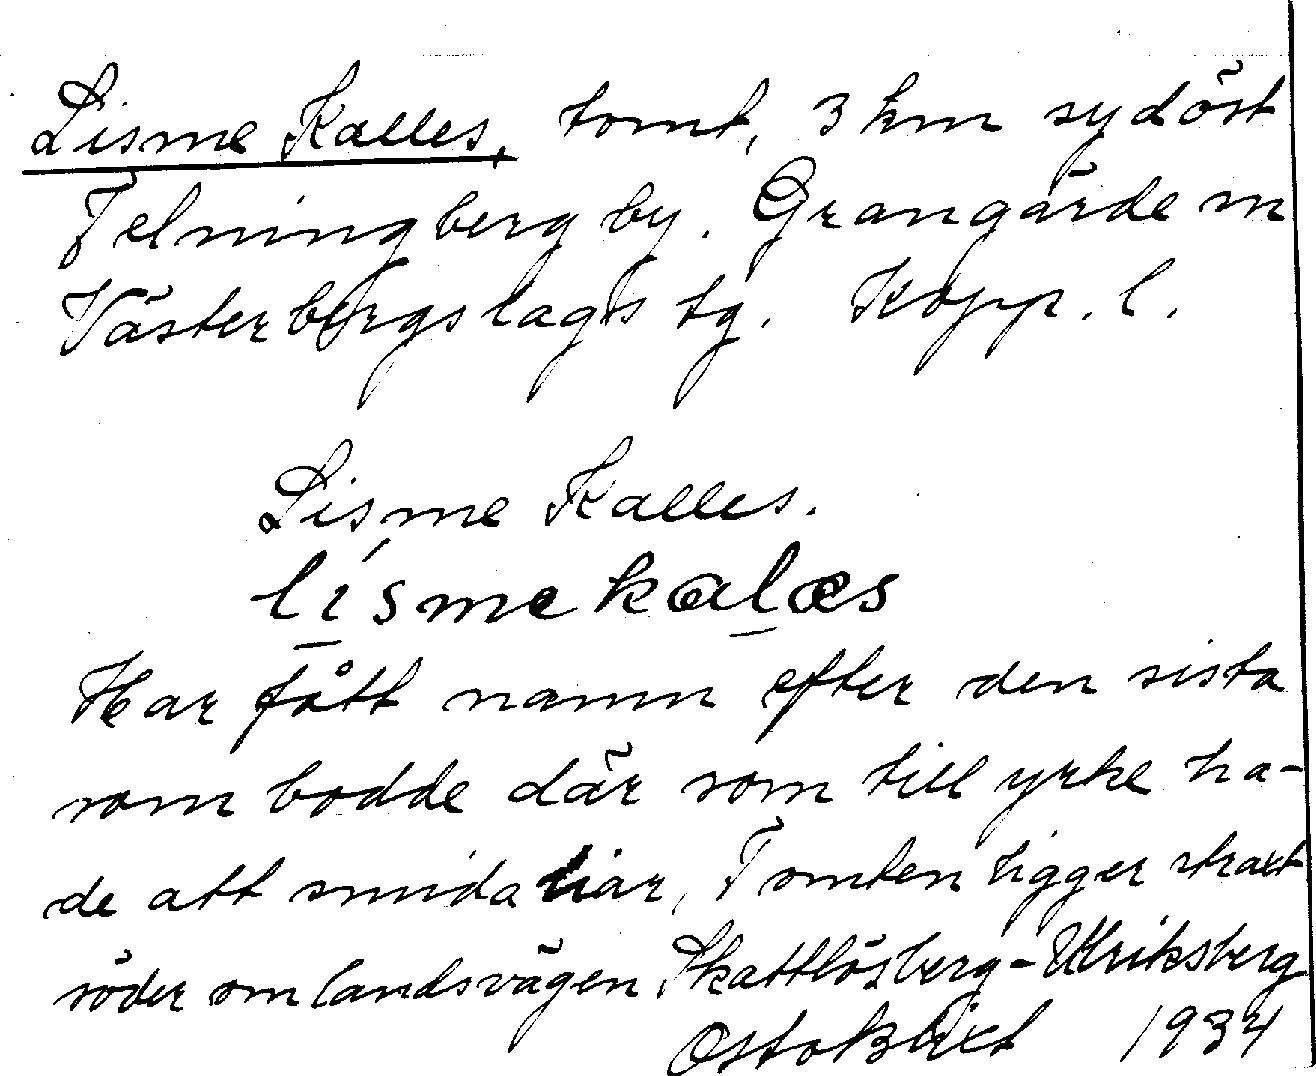 Lisme Kalles, tomt, 3 km sydöst
Felningberg by. Grangärde sn
Västerbergslags tg. Kopp. l.
Lisme Kalles.
lísmekalæs
Har fått namn efter den sista
som bodde där som till yrke ha-
de att smida liar, Tomten ligger strax
söder om landsvägen Skattlösberg-Ulriksberg
Blixt 1934